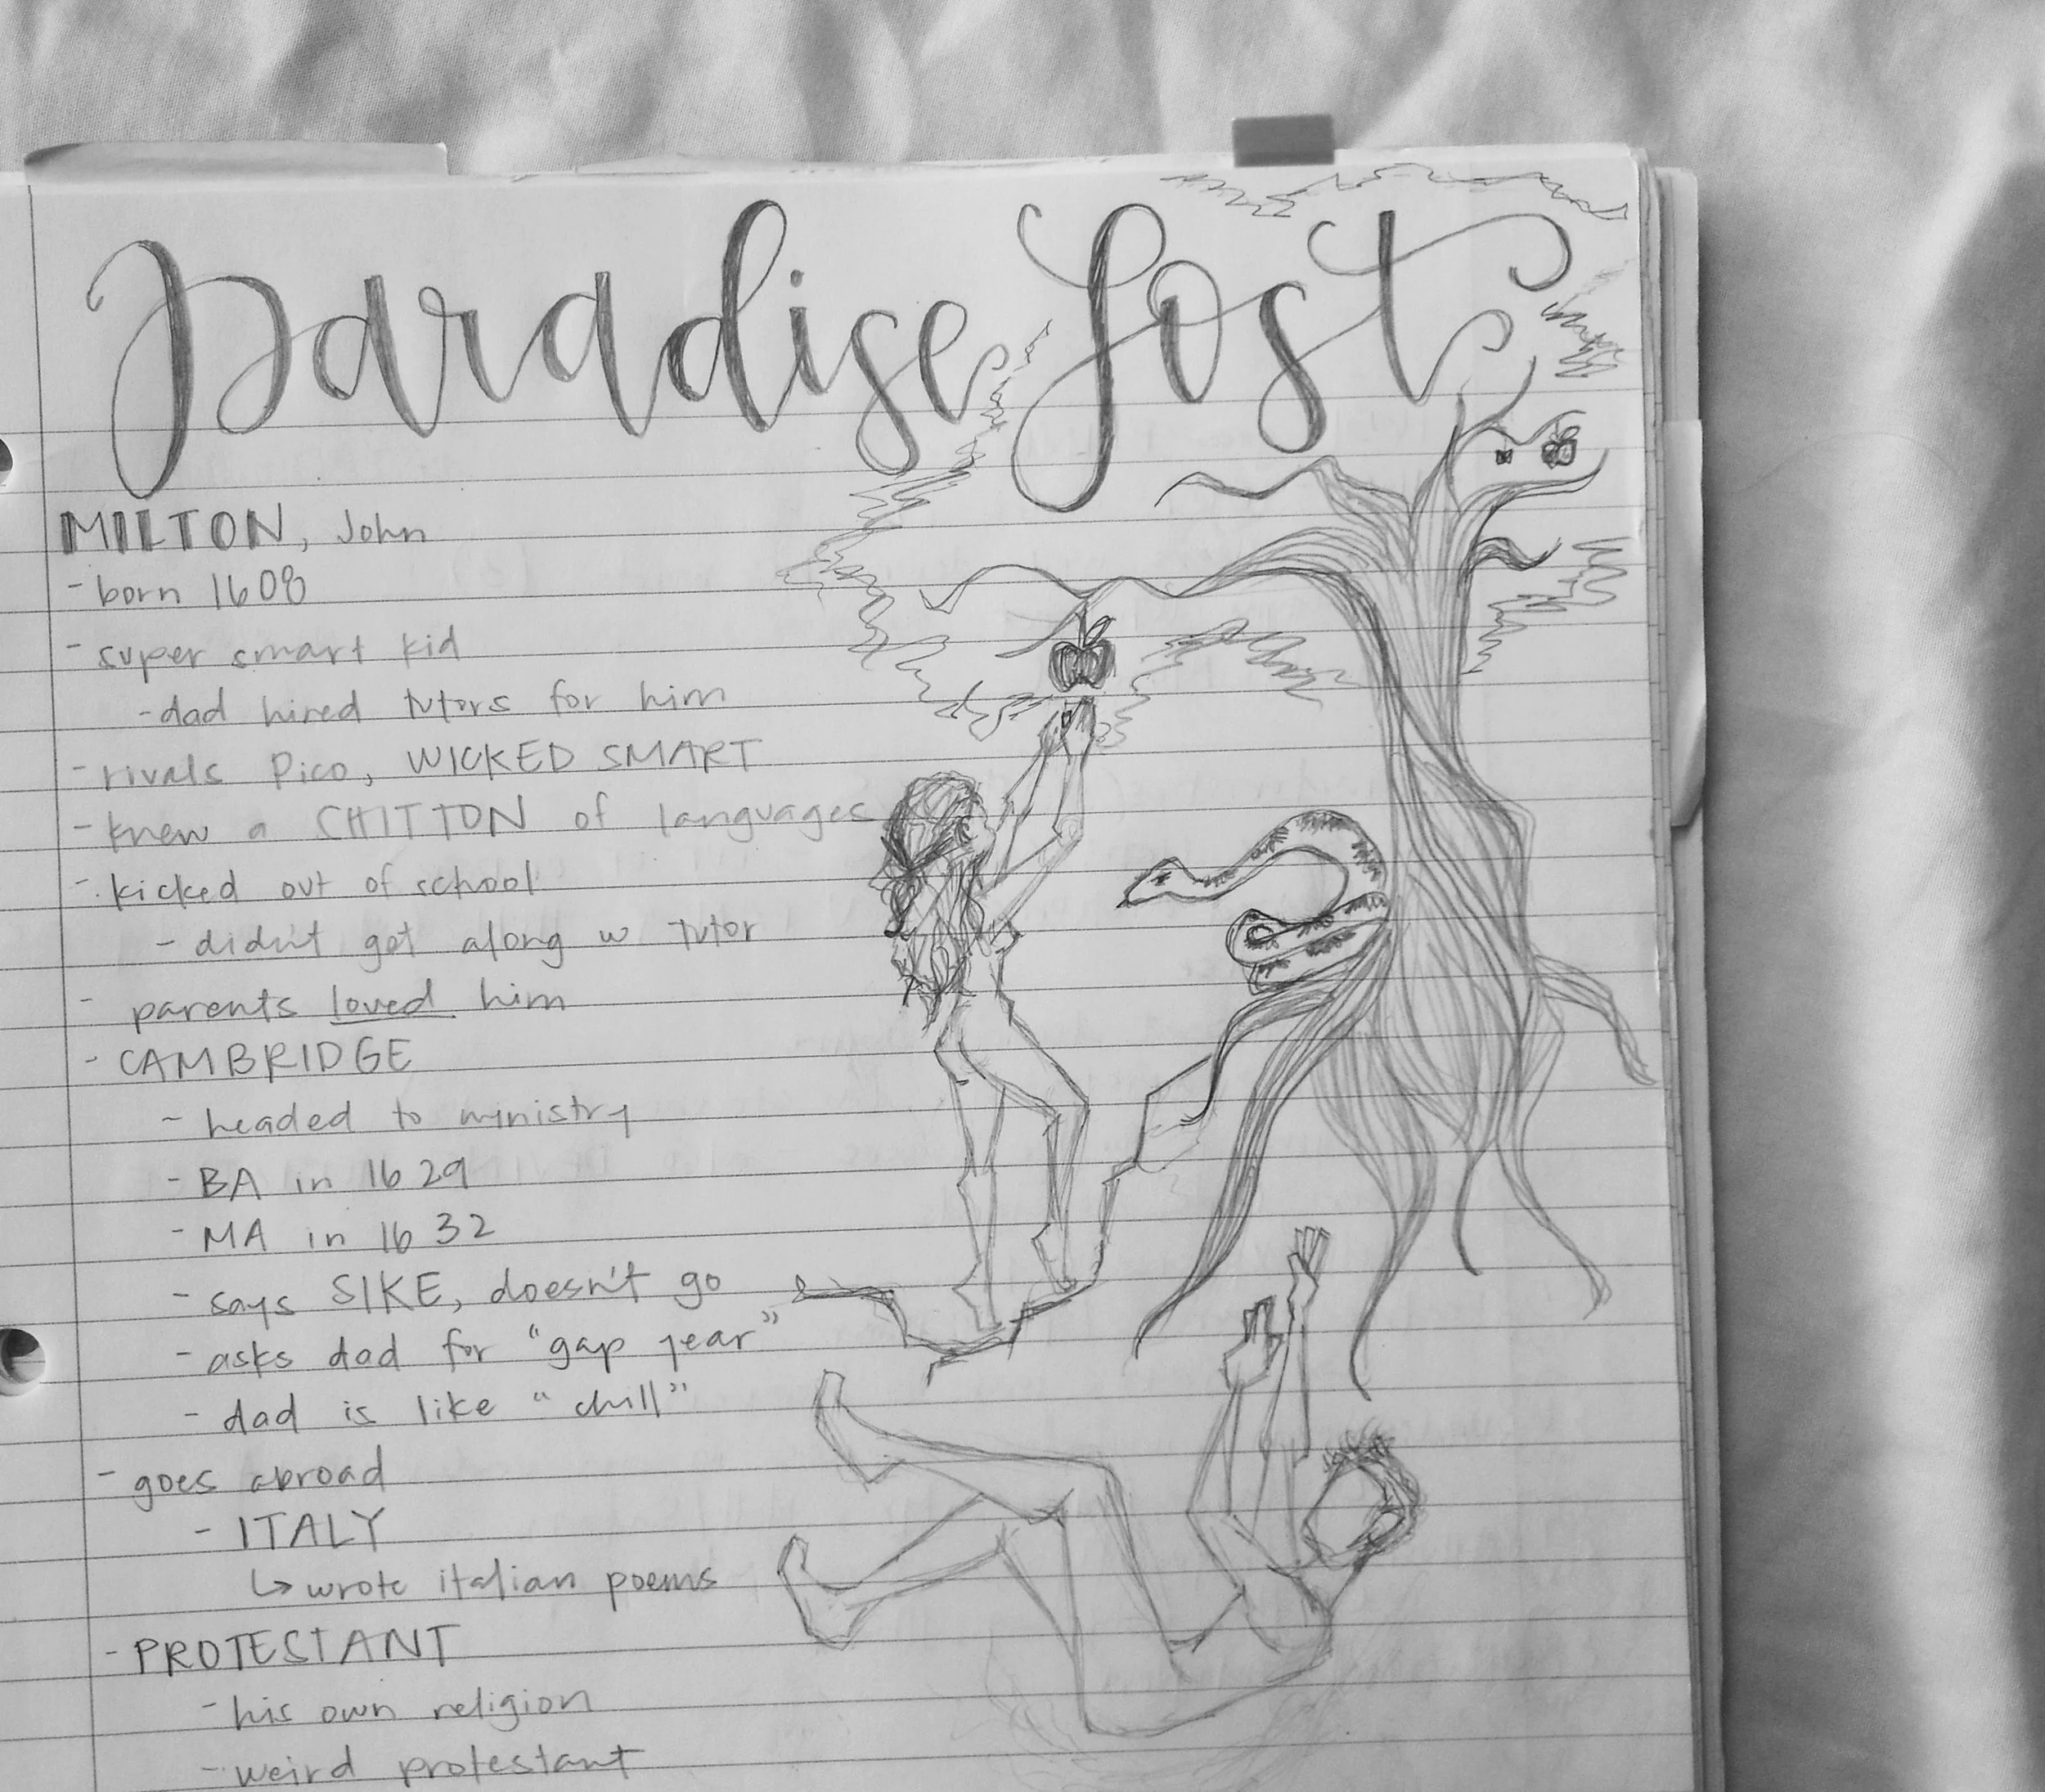 Paradise Lost
MILTON, John
- born 1608
- super smart kid
- dad hired tutors for him
- rivals Pico, WICKED SMART
- knew a SHITTON of languages
- kicked out of school
- didn't get along w tutor
- parents loved him
- CAMBRIDGE
- headed to ministry
- BA in 1629
- MA in 1632
- says SIKE, doesn't go
- asks dad for "gap year"
- dad is like "chill"
- goes abroad
- ITALY
↳ wrote italian poems
- PROTESTANT
- his own religion
- weird protestant